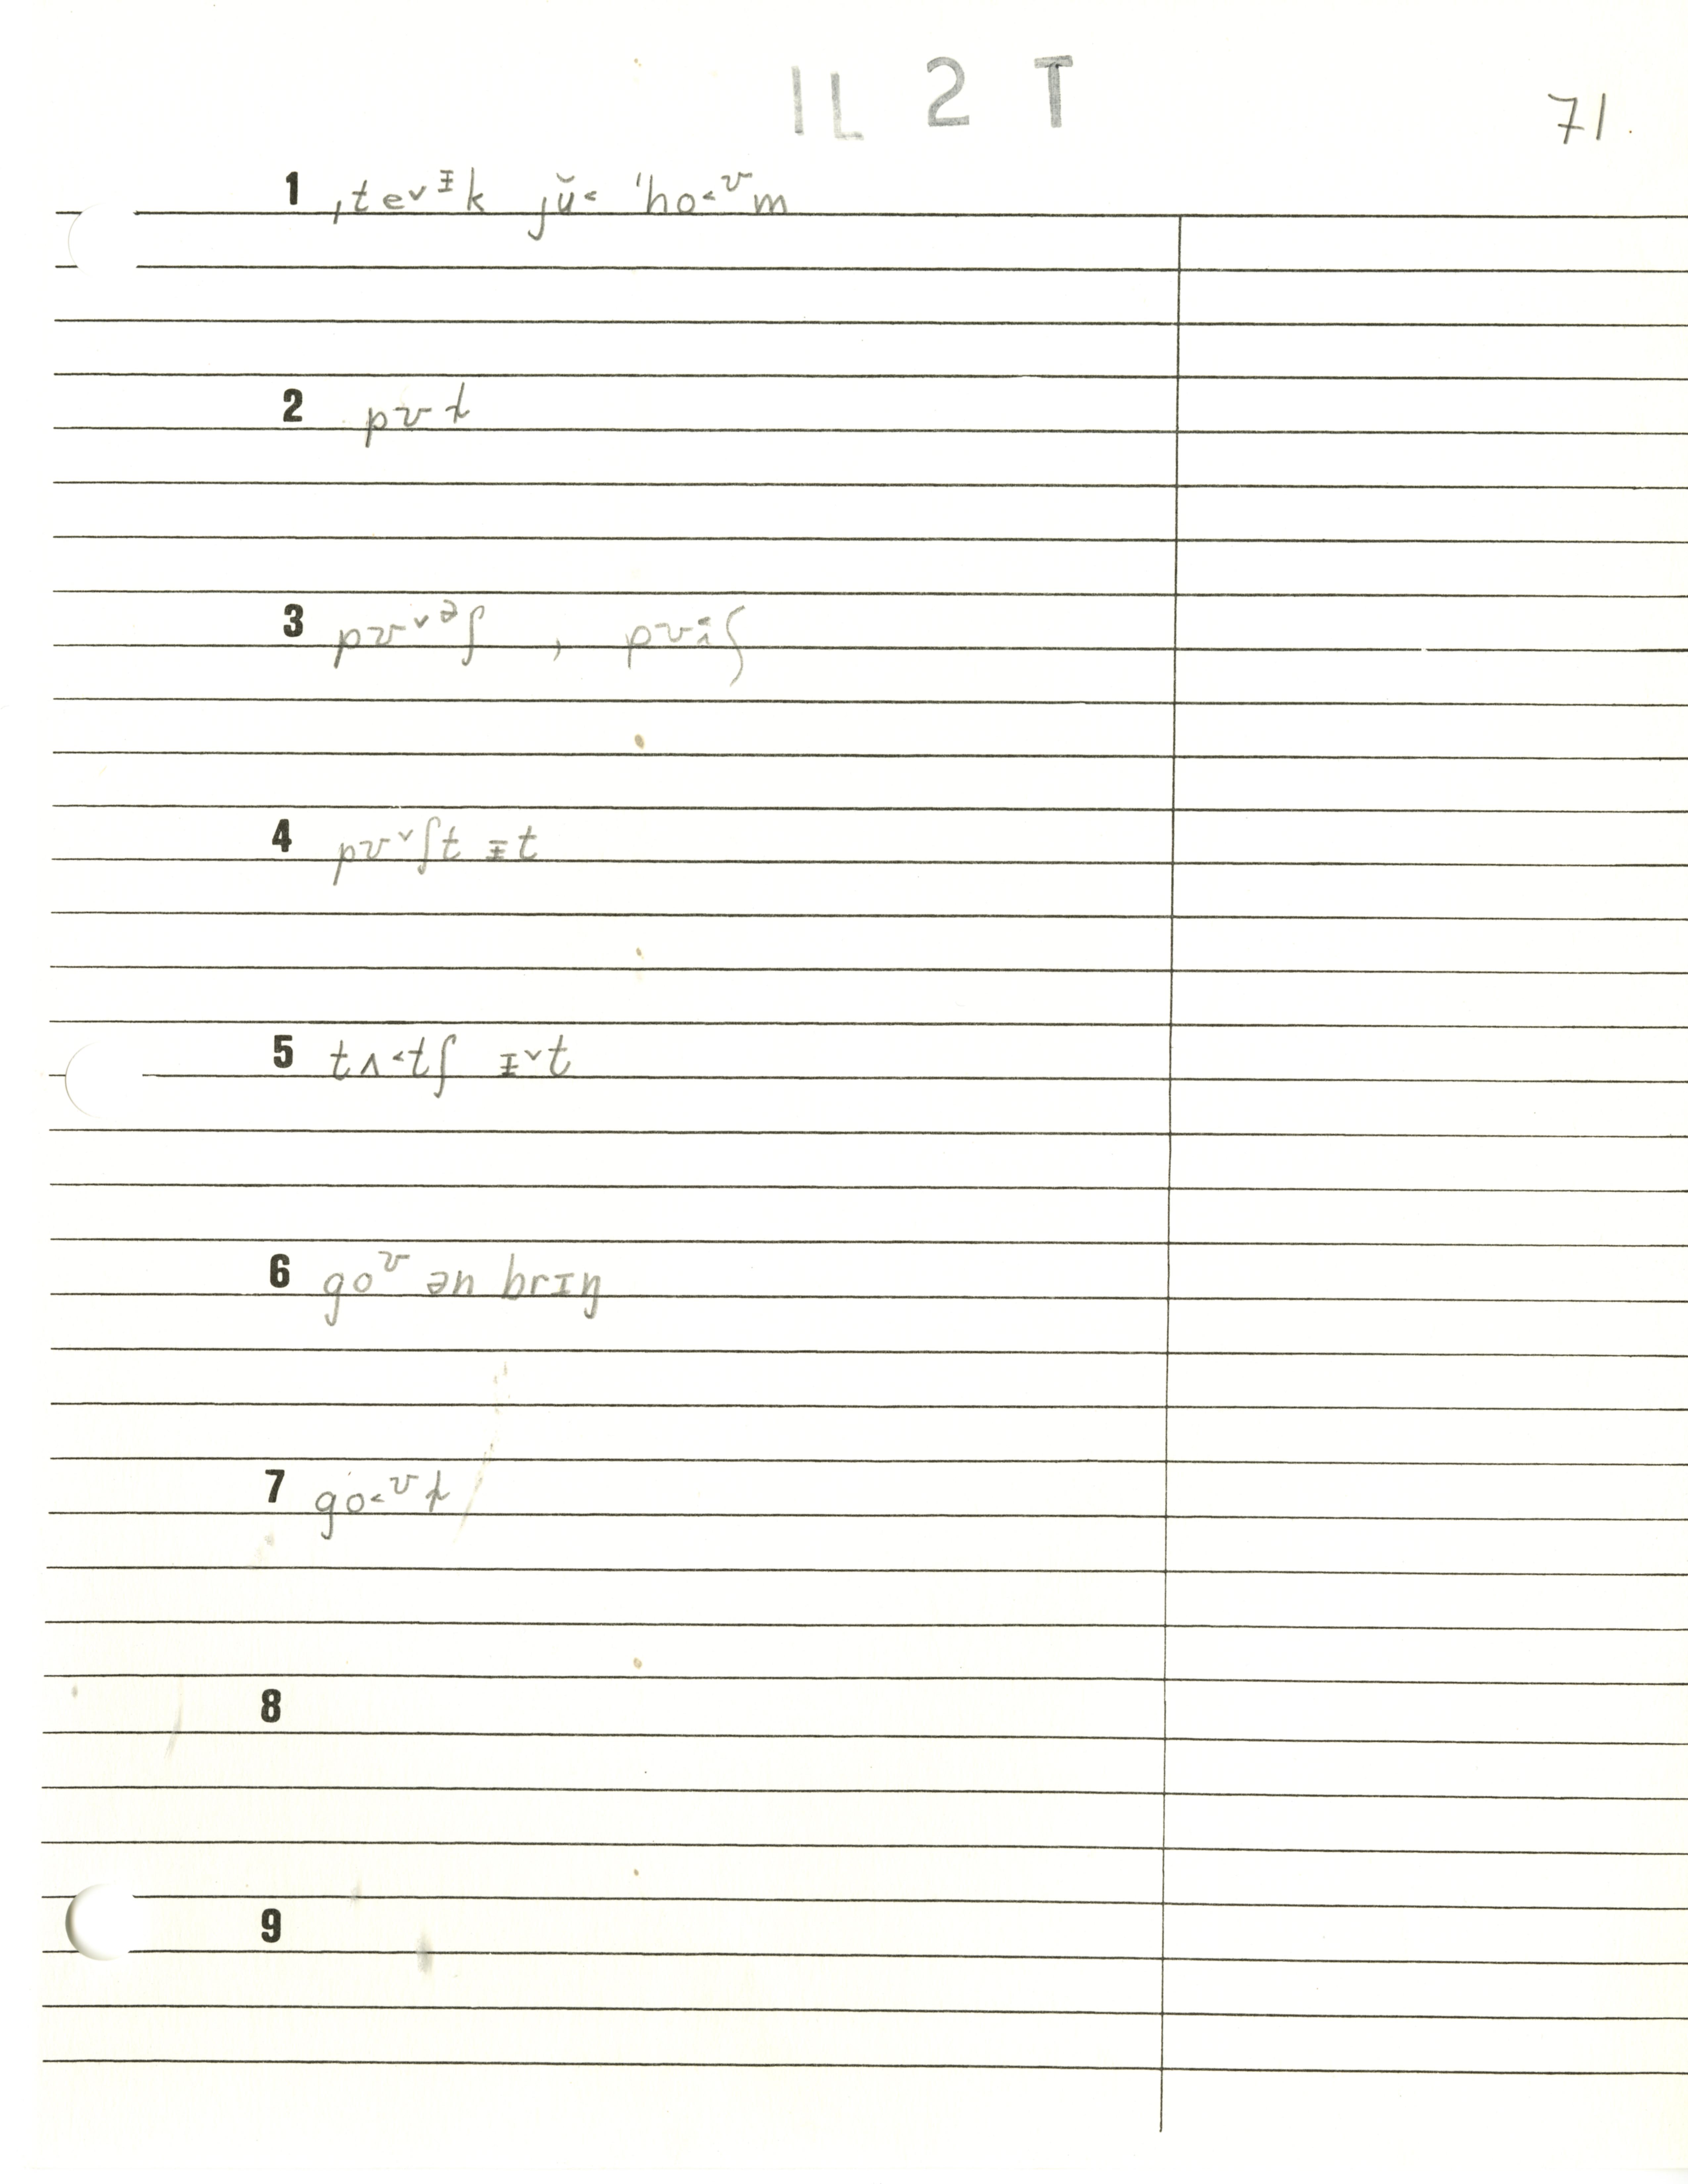 IL 2 T
71.
1 ˌte˅ᵻk jŭ˂ ˈho˂ᶷm
2 pʊt
3 pʊ˅ᵊʃ , pʊiʃ
4 pʊ˅ʃt ᵻt
5 tʌ˂tʃ ᵻ˅t
6 goᶷ ən brɪŋ
7 go˂ᶷt
8
9